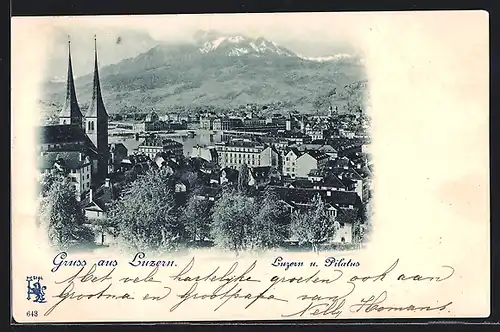 Gruss aus Luzern.
Luzern u. Pilatus
Met vele hartelijke groeten, ook aan
Grootma en Grootpapa van
Nelly Homans.
643